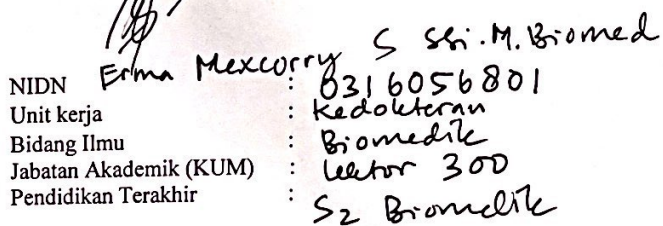 Erma Mexcorry S SSi.M.Biomed
NIDN : 0316056801
Unit kerja : Kedokteran
Bidang Ilmu : Biomedik
Jabatan Akademik (KUM) : Lektor 300
Pendidikan Terakhir : S2 Biomedik